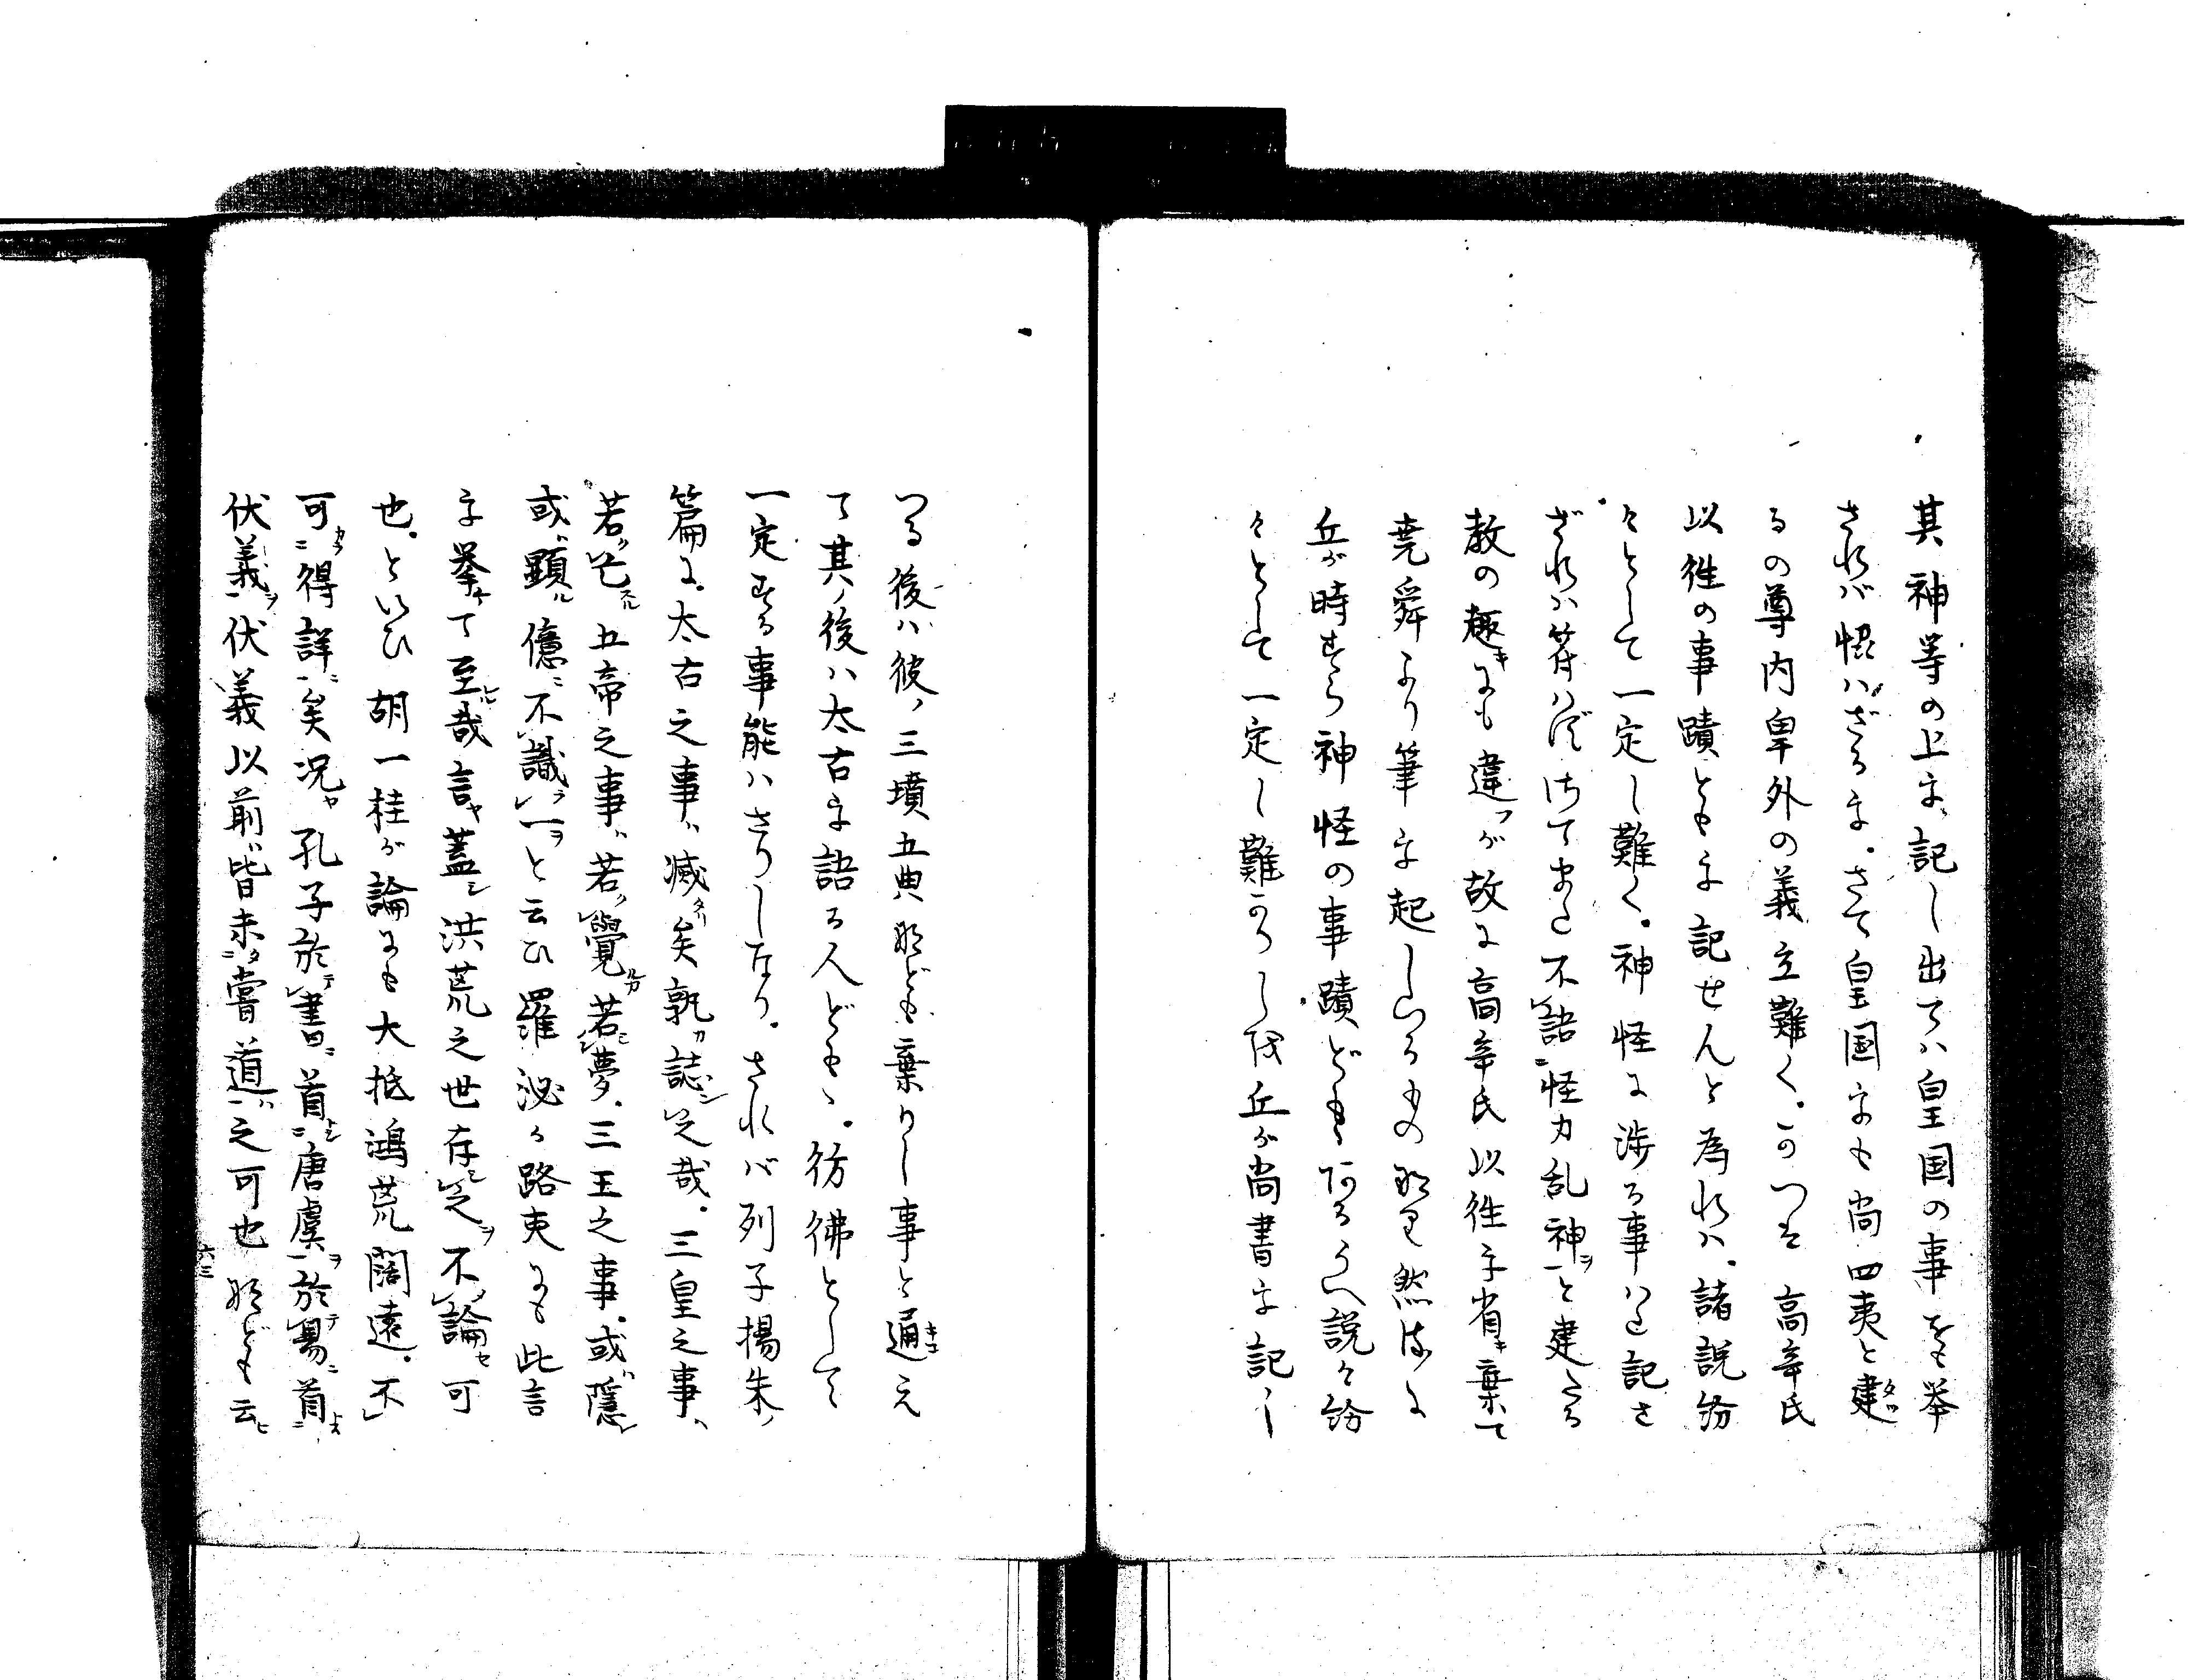 其神等の上に記し出てハ皇国の事をも挙
されバ慍ハざるに。さて皇国にも尚四夷と建
るの尊内卑外の義立難く。かつは高辛氏
以徃の事蹟ともに記せんと為れハ。諸説紛
々として一定し難く。神怪に渉る事ハ記さ
ざれハ符ハず はた不語怪力乱神と建たる
教の趣きにも違ふが故に高辛氏以徃に省き棄て
堯舜より筆に起したるもの なり 然るに
丘が時すら神怪の事蹟ども 有るうへ説々紛
々として一定し難かりし 丘が尚書に記し
つる後ハ彼ノ三墳五典などハ棄りし事と通え
て其ノ後ハ太古に語る人ども。彷彿として
一定する事能ハさりしなり。されバ列子楊朱ノ
篇に。太古之事ハ滅矣孰誌之哉。三皇之事ハ
若存若亡五帝之事ハ若覺若夢。三王之事。或隱
或顯億不識一と云ひ羅泌が路史にも此言
に挙て至哉言蓋洪荒之世存之不論可
也。といひ胡一桂が論にも大抵鴻荒闊遠。不
可得詳矣况孔子於書首唐虞於易首
伏羲伏羲以前皆未嘗道之可也などゝ云ヒ
六三